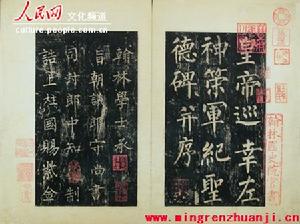 人民网 文化频道
皇帝巡幸左
神策軍紀聖
德碑并序
翰林學士承
旨朝議郎守尚書
司封郎中知制
誥上柱國賜紫金
翰林國史院官書
www.mingrenzhuanji.cn